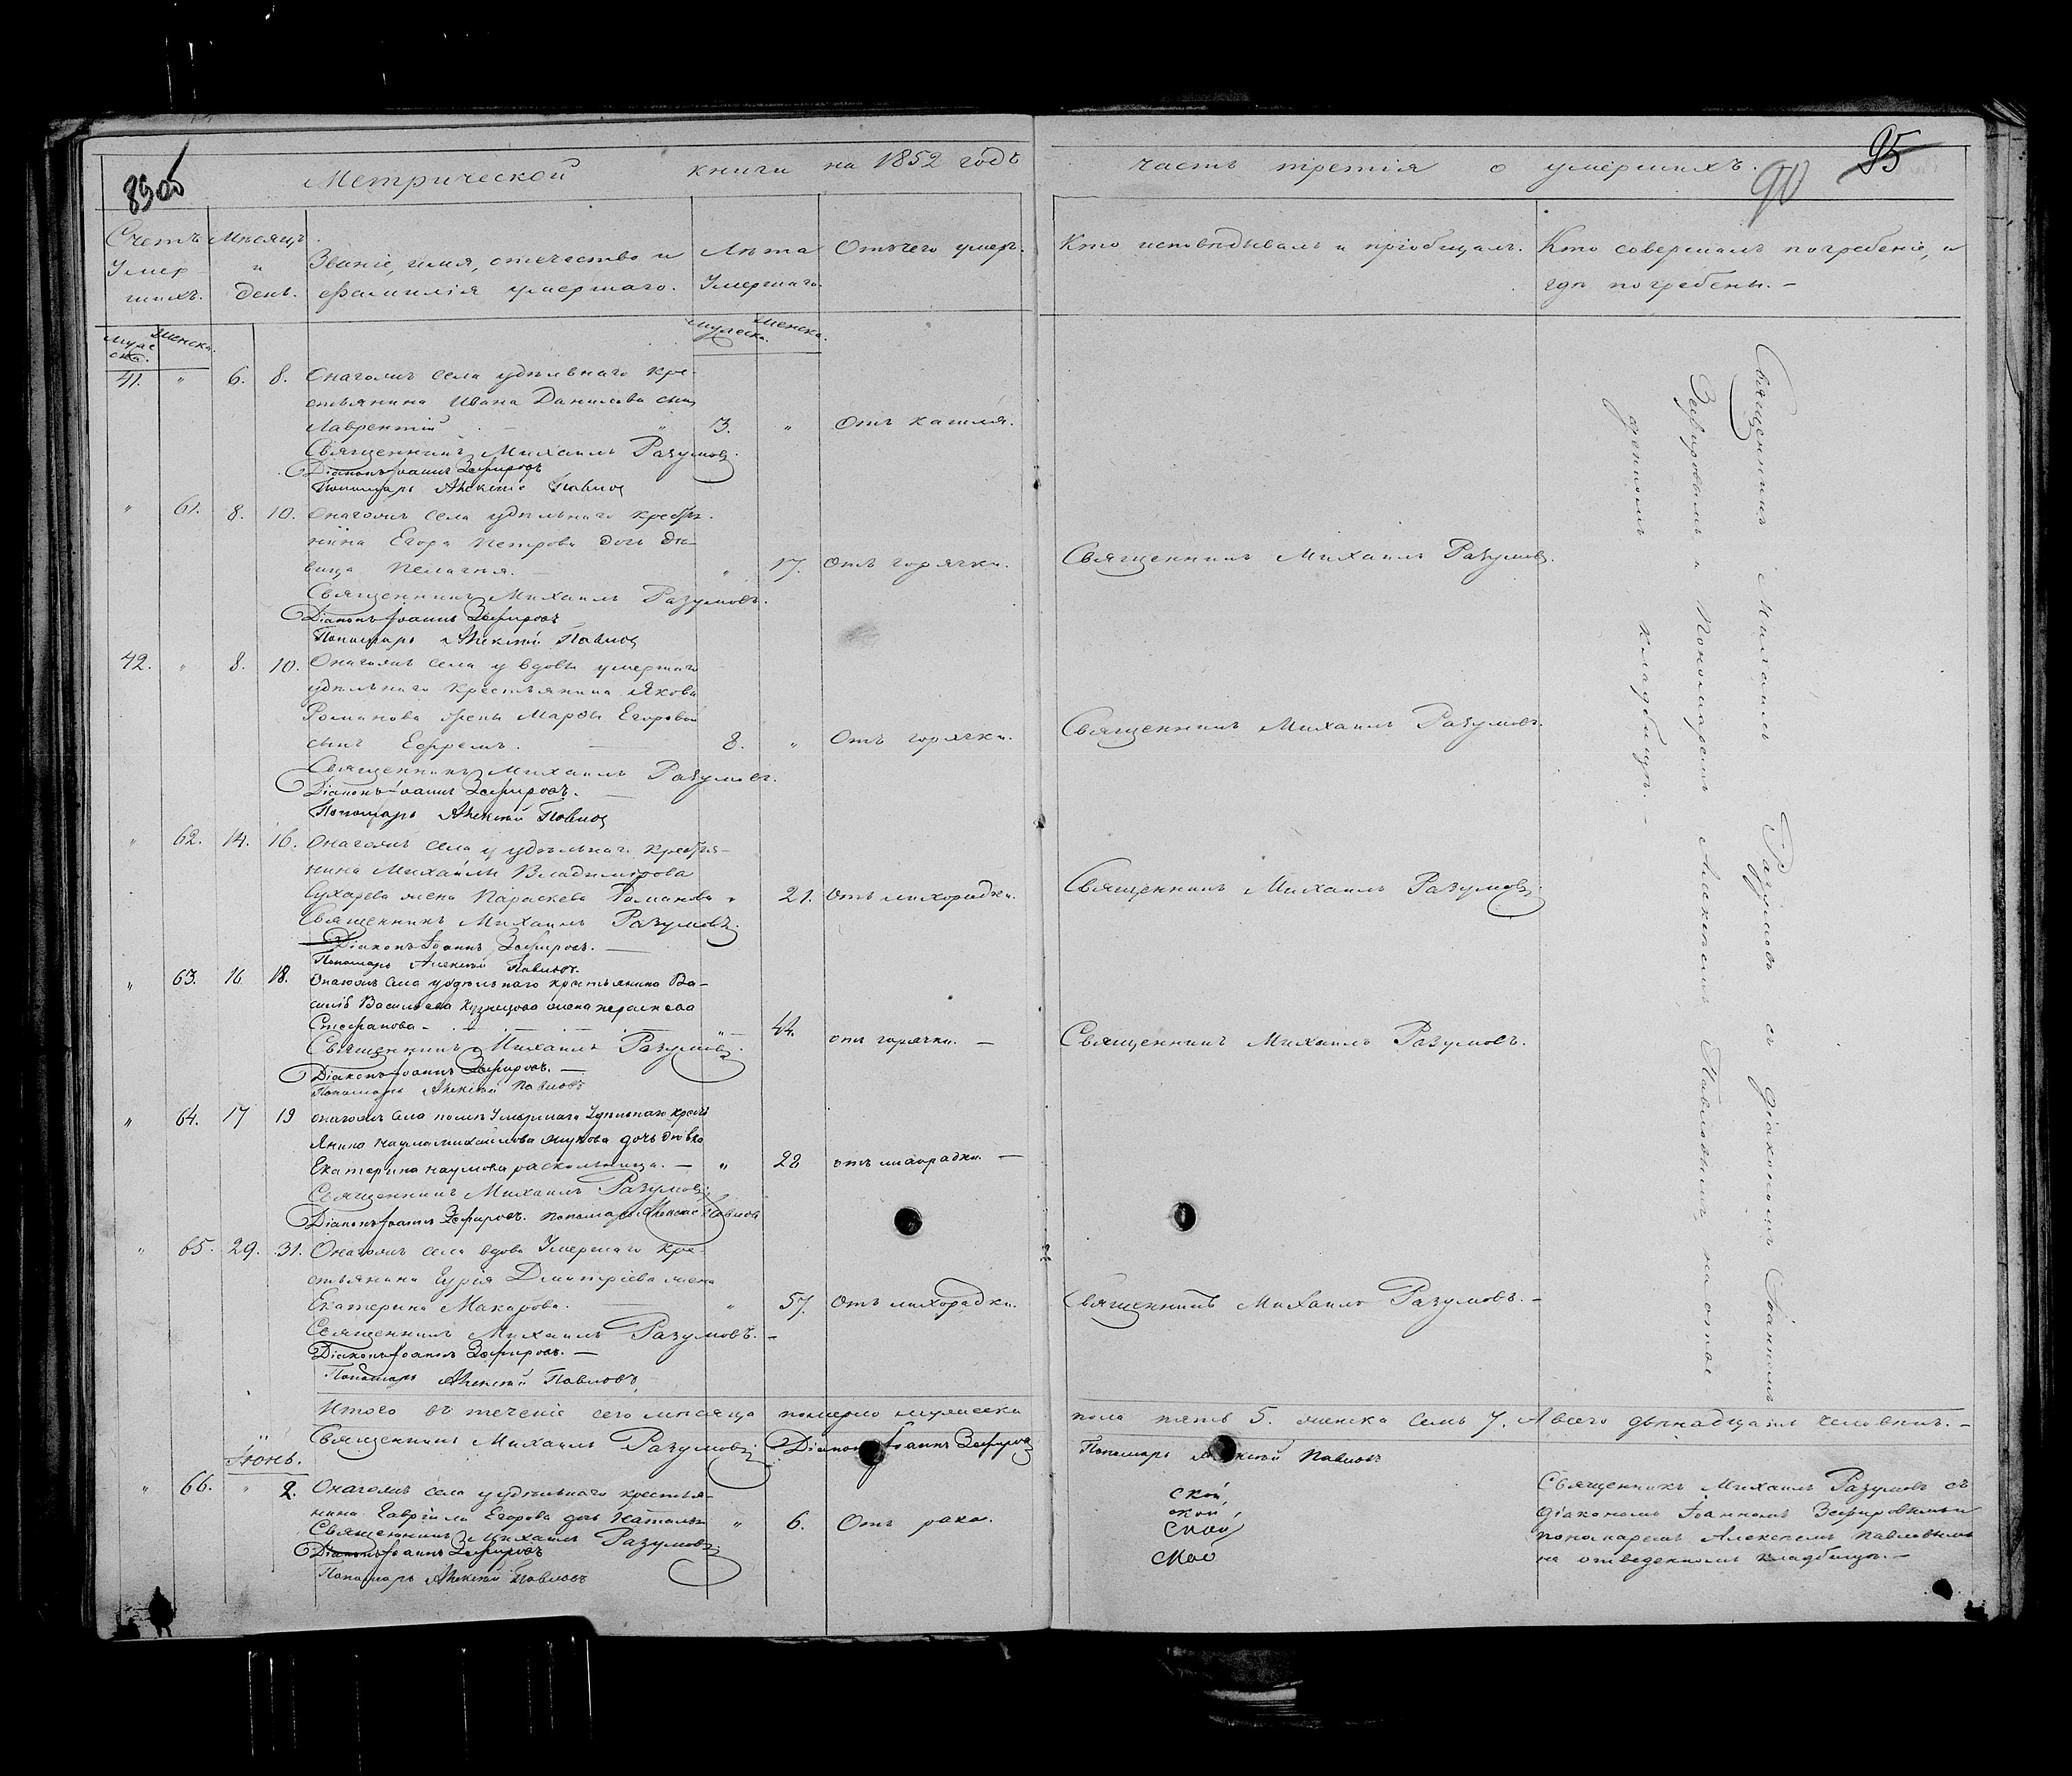 Метрической книги на 1852 годъ
часть третія о умершихъ.
95
90
Счетъ Умершихъ.
Мѣсяцъ и день.
Званіе, имя, отечество и фамилія умершаго.
Лѣта Умершаго.
Отъ чего умеръ.
Кто исповѣдывалъ и пріобщалъ.
Кто совершалъ погребеніе, и
гдѣ погребены. –
Мужеска. Женска.
Мужеска. Женска.
41. " 6. 8. Онагожъ села удѣльнаго кре-
стьянина Ивана Данилова сынъ
Лаврентій " 13. " Отъ кашля.
Священникъ Михаилъ Разумовъ.
Діаконъ Іоаннъ Зефировъ
Пономарь Алексѣй Павловъ
" 61. 8. 10. Онагожъ села удѣльнаго крестья-
нина Егора Петрова дочь дѣ-
вица Пелагия. " 17. Отъ горячки. Священникъ Михаилъ Разумовъ.
Священникъ Михаилъ Разумовъ.
Діаконъ Іоаннъ Зефировъ
Пономарь Алексѣй Павловъ
42. " 8. 10. Онагожъ села у вдовы умершаго
удѣльнаго крестьянина Якова
Романова жены Марѳы Егоровой
сынъ Ефремъ. 8. " Отъ горячки. Священникъ Михаилъ Разумовъ.
Священникъ Михаилъ Разумовъ.
Діаконъ Іоаннъ Зефировъ.
Пономарь Алексѣй Павловъ
" 62. 14. 16. Онагожъ села у удѣльнаго крестья-
нина Михайлы Владимірова
Сухарева жена Параскева Романова " 21. Отъ лихорадки. Священникъ Михаилъ Разумовъ.
Священникъ Михаилъ Разумовъ.
Діаконъ Іоаннъ Зефировъ.
Пономарь Алексѣй Павловъ.
" 63. 16 18. Онагожъ села удѣльнаго крестьянина Ва-
силія Васильева Кузнецова жена Параскева
Стефанова – " 44. отъ горячки. – Священникъ Михаилъ Разумовъ.
Священникъ Михаилъ Разумовъ.
Діаконъ Іоаннъ Зефировъ. –
Пономарь Алексѣй Павловъ
" 64. 17 19 онагожъ села Умершаго Удѣльнаго крест
янина Наума Михайлова дочь дѣвка
Екатерина Наумова раскольница. – " 28 отъ лихорадки. –
Священникъ Михаилъ Разумовъ.
Діаконъ Іоаннъ Зефировъ. Пономарь Алексѣй Павловъ
" 65. 29. 31. Онагожъ села вдова Умершаго кре-
стьянина Гурія Дмитріева жена
Екатерина Макарова. " 57. Отъ лихорадки. Священникъ Михаилъ Разумовъ. –
Священникъ Михаилъ Разумовъ. –
Діаконъ Іоаннъ Зефировъ. –
Пономарь Алексѣй Павловъ
Священникъ Михаилъ Разумовъ съ діакономъ Іоанномъ
Зефировымъ и Пономаремъ Алексѣемъ Павловымъ, на отве-
денномъ кладбищѣ. –
Итого въ теченіе сего мѣсяца померло мужеска пола пять 5. женска семь 7. А всего двѣнадцать человѣкъ. –
Священникъ Михаилъ Разумовъ. Діаконъ Іоаннъ Зефировъ Пономарь Алексѣй Павловъ
Іюнь.
" 66. " 2. Онагожъ села у удѣльнаго крестья-
нина Гавріила Егорова дочь Наталья " 6. Отъ рака.
Священникъ Михаилъ Разумовъ.
Діаконъ Іоаннъ Зефировъ
Пономарь Алексѣй Павловъ
ской,
ской
Священникъ Михаилъ Разумовъ съ
діакономъ Іоанномъ Зефировымъ и
пономаремъ Алексѣемъ Павловымъ
на отведенномъ кладбищѣ. –